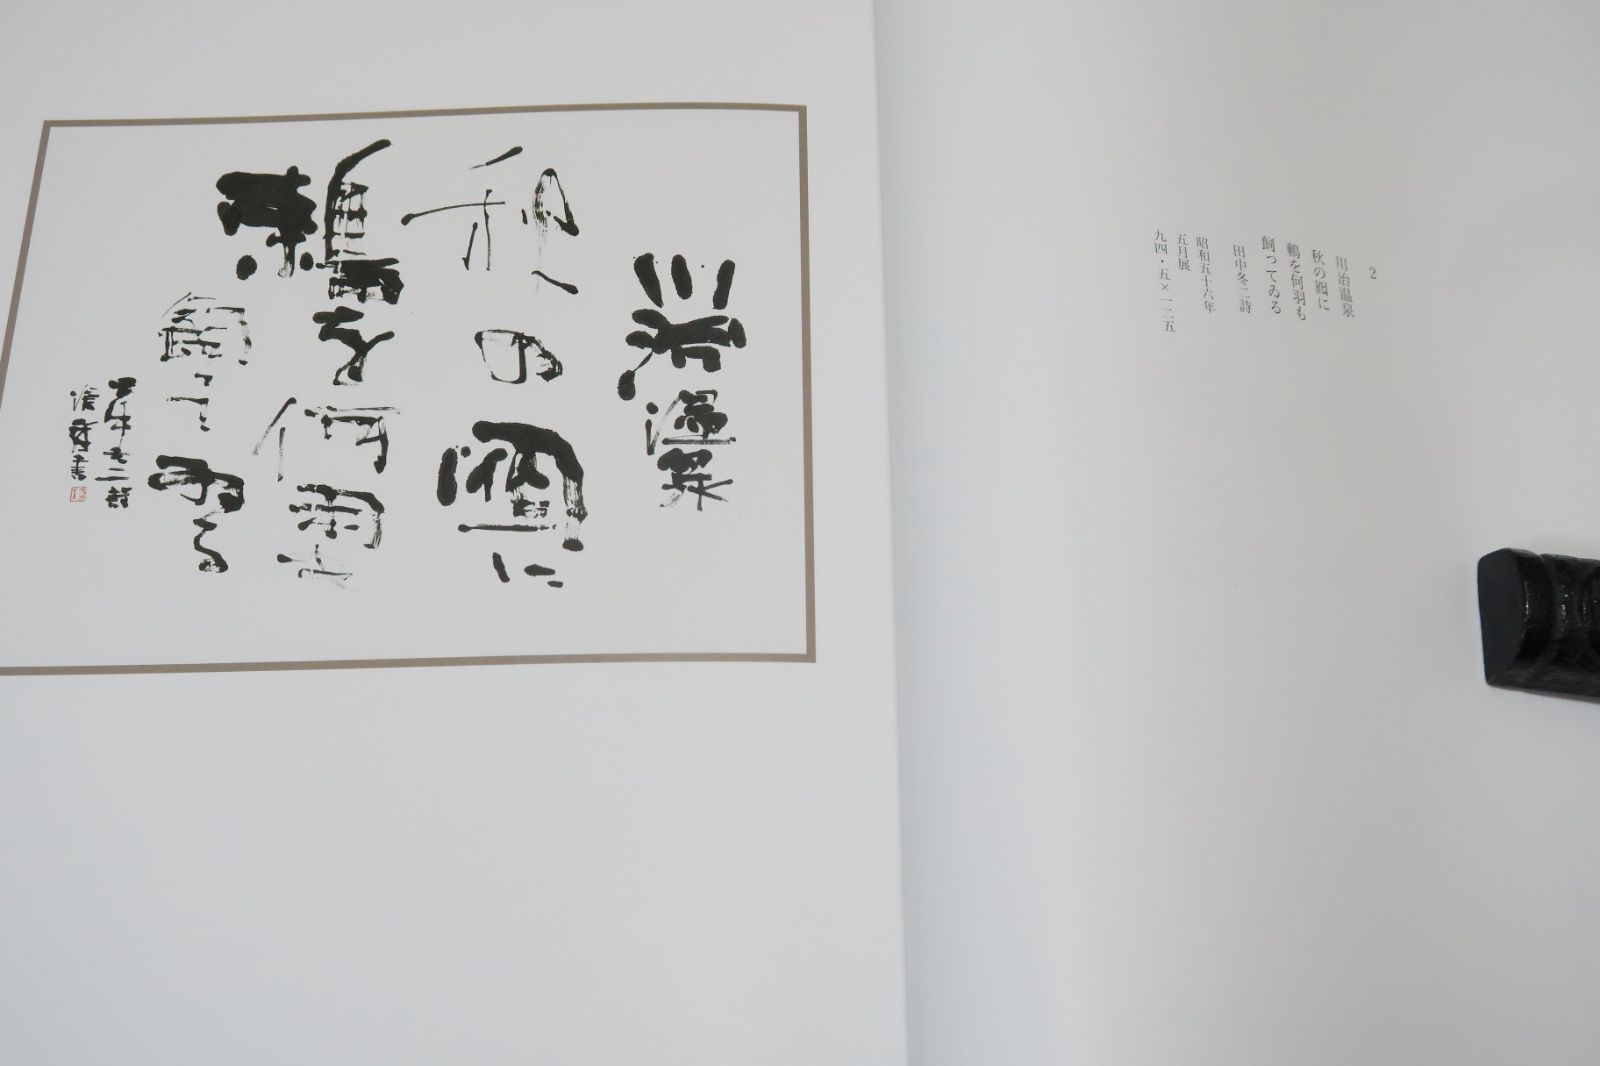 2
川治温泉
秋の囮に
鶫を何羽も
飼ってゐる
田中冬二詩
昭和五十六年
五月展
九四・五×一二五
川治温泉
秋の囮に
鶫を何羽も
飼ってゐる
田中冬二詩
書